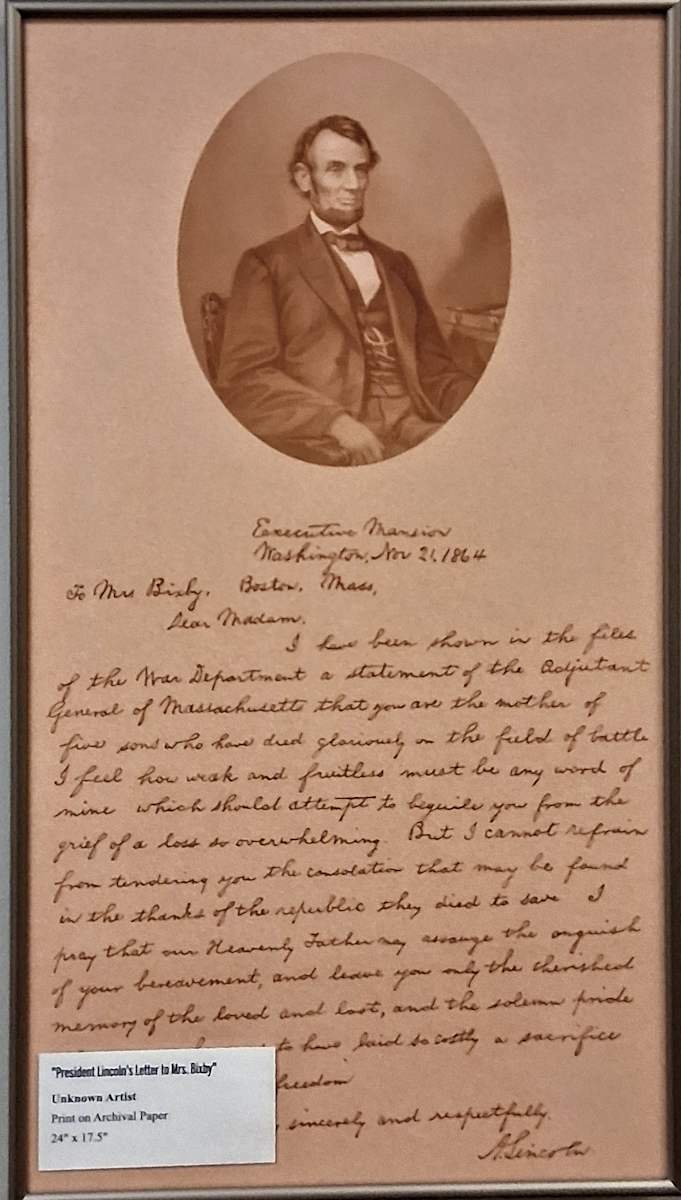 Executive Mansion
Washington, Nov 21, 1864
To Mrs Bixby, Boston, Mass,
Dear Madam.
I have been shown in the files
of the War Department a statement of the Adjutant
General of Massachusetts that you are the mother of
five sons who have died gloriously on the field of battle
I feel how weak and fruitless must be any word of
mine which should attempt to beguile you from the
grief of a loss so overwhelming. But I cannot refrain
from tendering you the consolation that may be found
in the thanks of the republic they died to save I
pray that our Heavenly Father may assuage the anguish
of your bereavement, and leave you only the cherished
memory of the loved and lost, and the solemn pride
to have laid so costly a sacrifice
freedom
sincerely and respectfully.
A. Lincoln
"President Lincoln's Letter to Mrs. Bixby"
Unknown Artist
Print on Archival Paper
24" x 17.5"